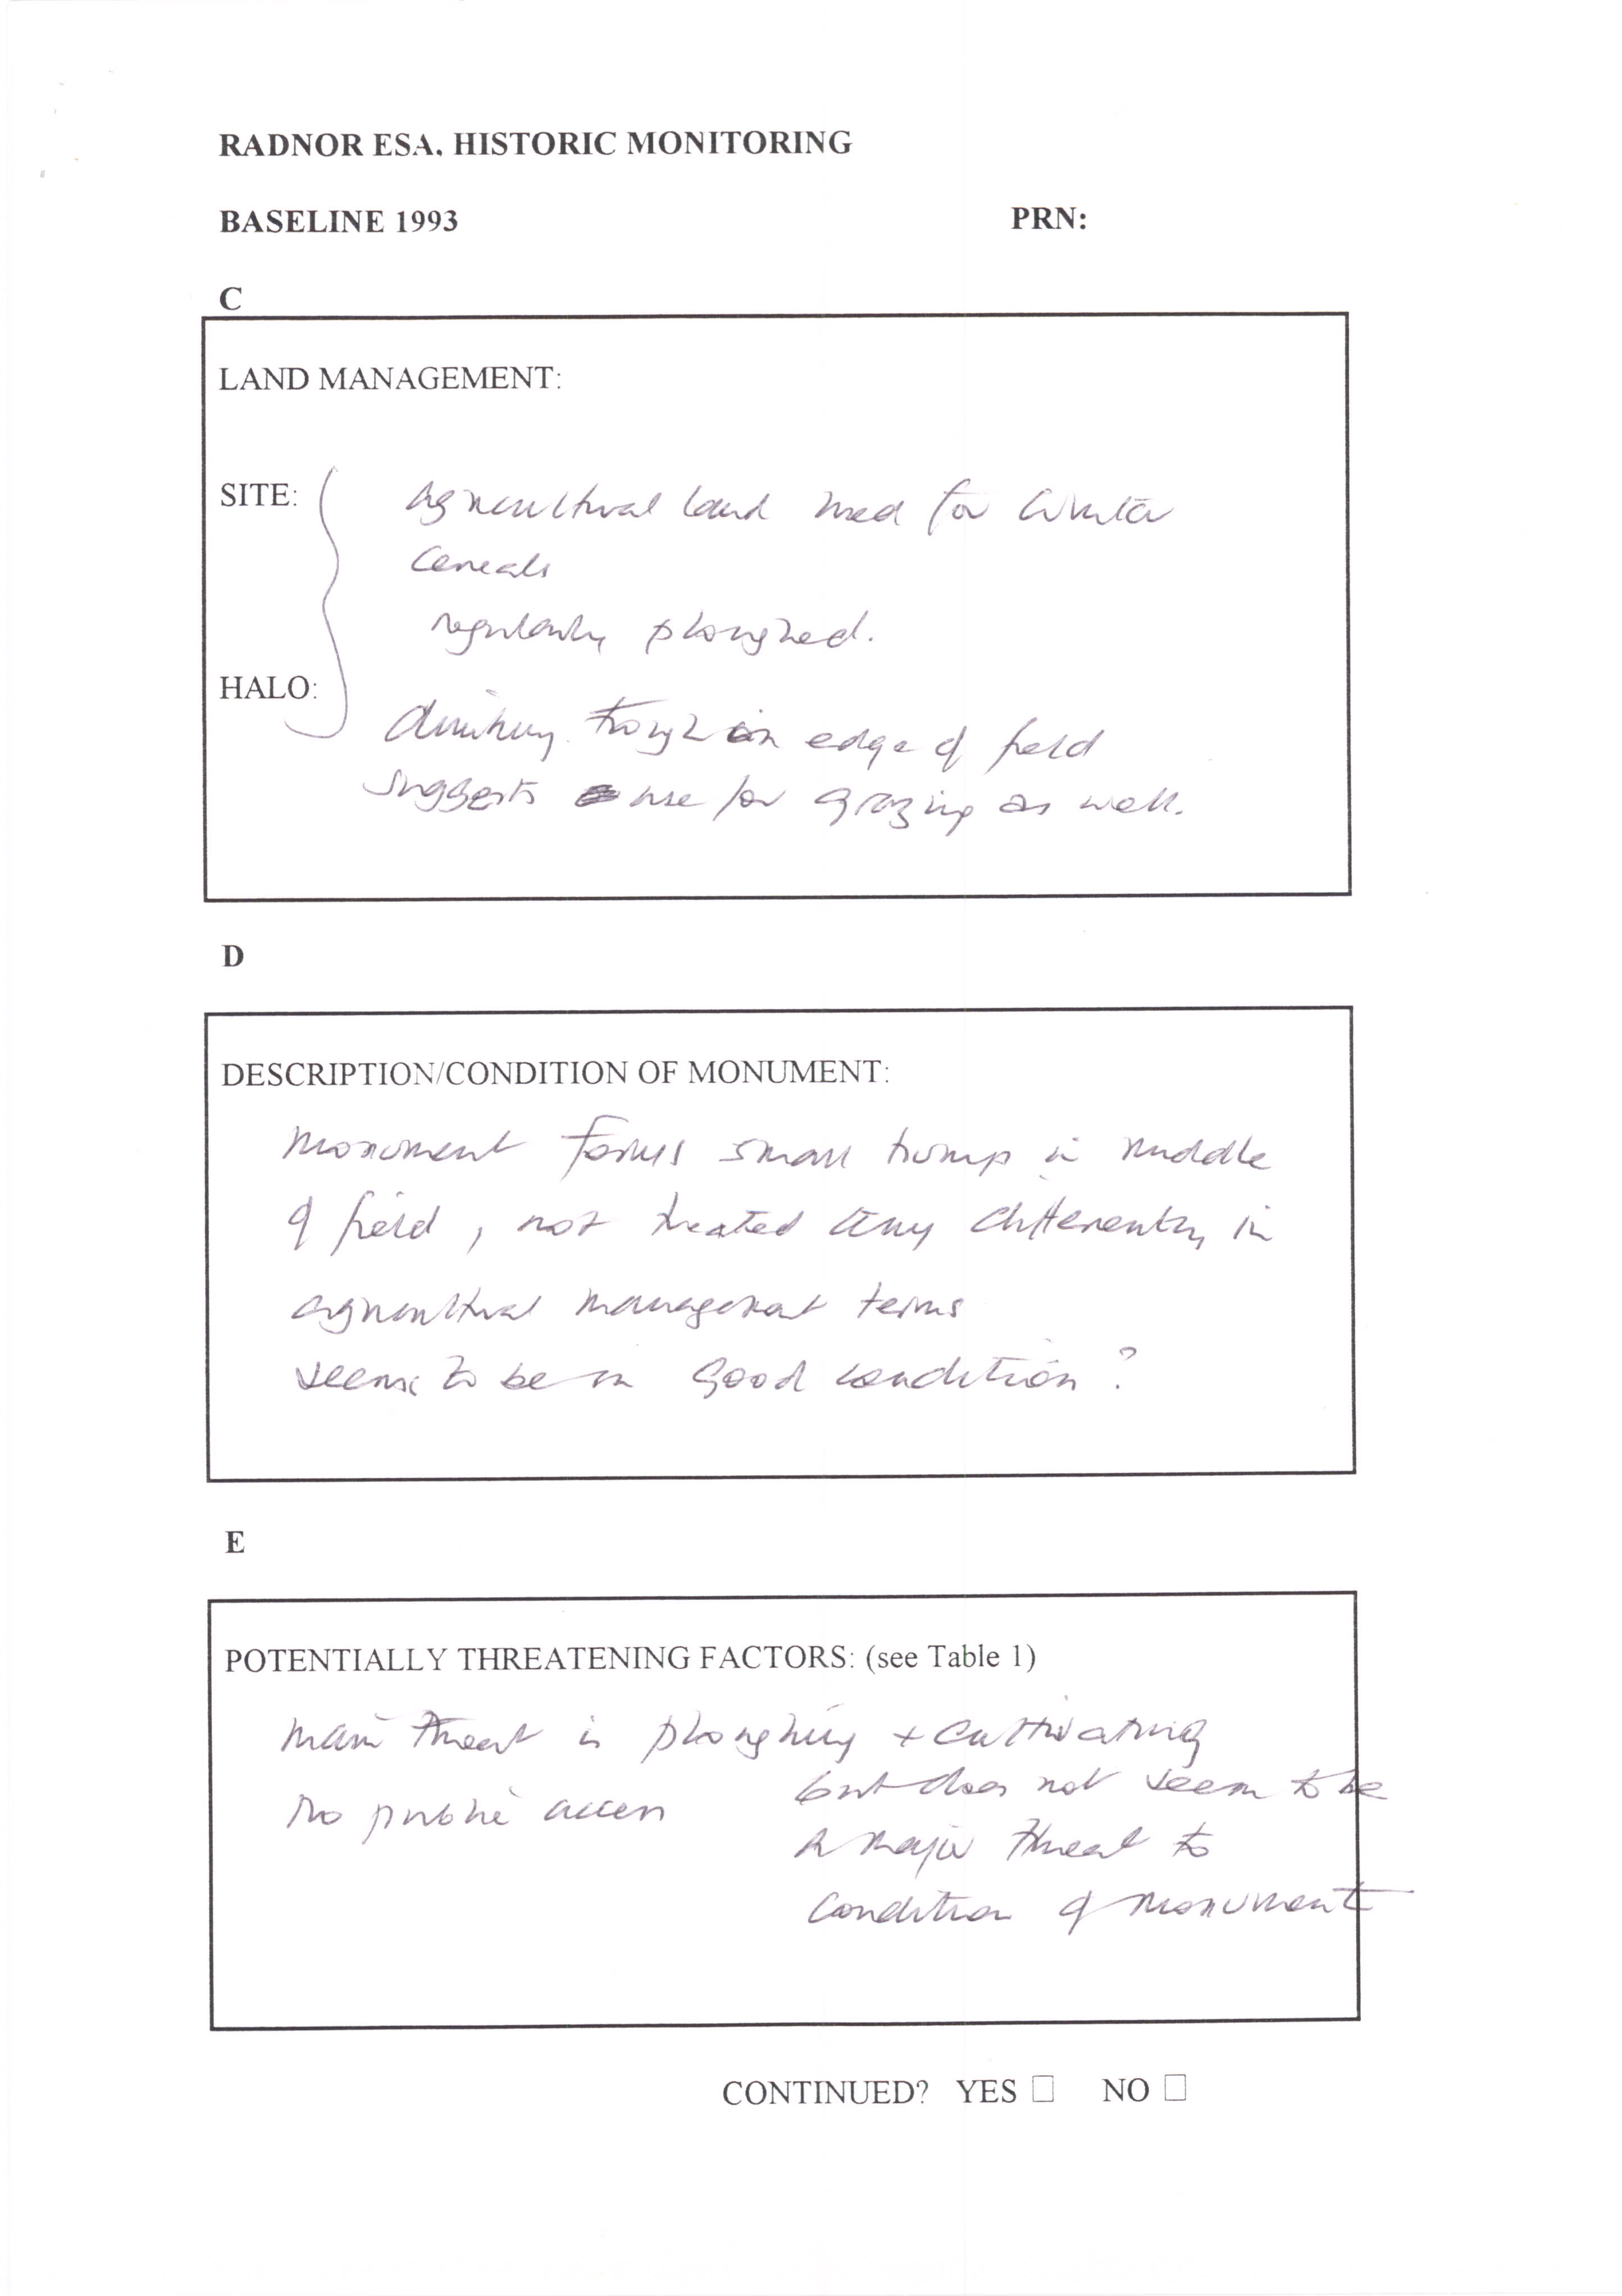 RADNOR ESA. HISTORIC MONITORING
BASELINE 1993 PRN:
C
LAND MANAGEMENT:
SITE: agricultural land used for winter
cereals
regularly ploughed.
HALO:
drinking trough on edge of field
suggests use for grazing as well.
D
DESCRIPTION/CONDITION OF MONUMENT:
Monument forms small hump in middle
of field, not treated any differently in
agricultural management terms
seems to be in good condition?
E
POTENTIALLY THREATENING FACTORS: (see Table 1)
Main threat is ploughing + cultivating
but does not seem to be
No public access
a major threat to
condition of monument
CONTINUED? YES ☐ NO ☐